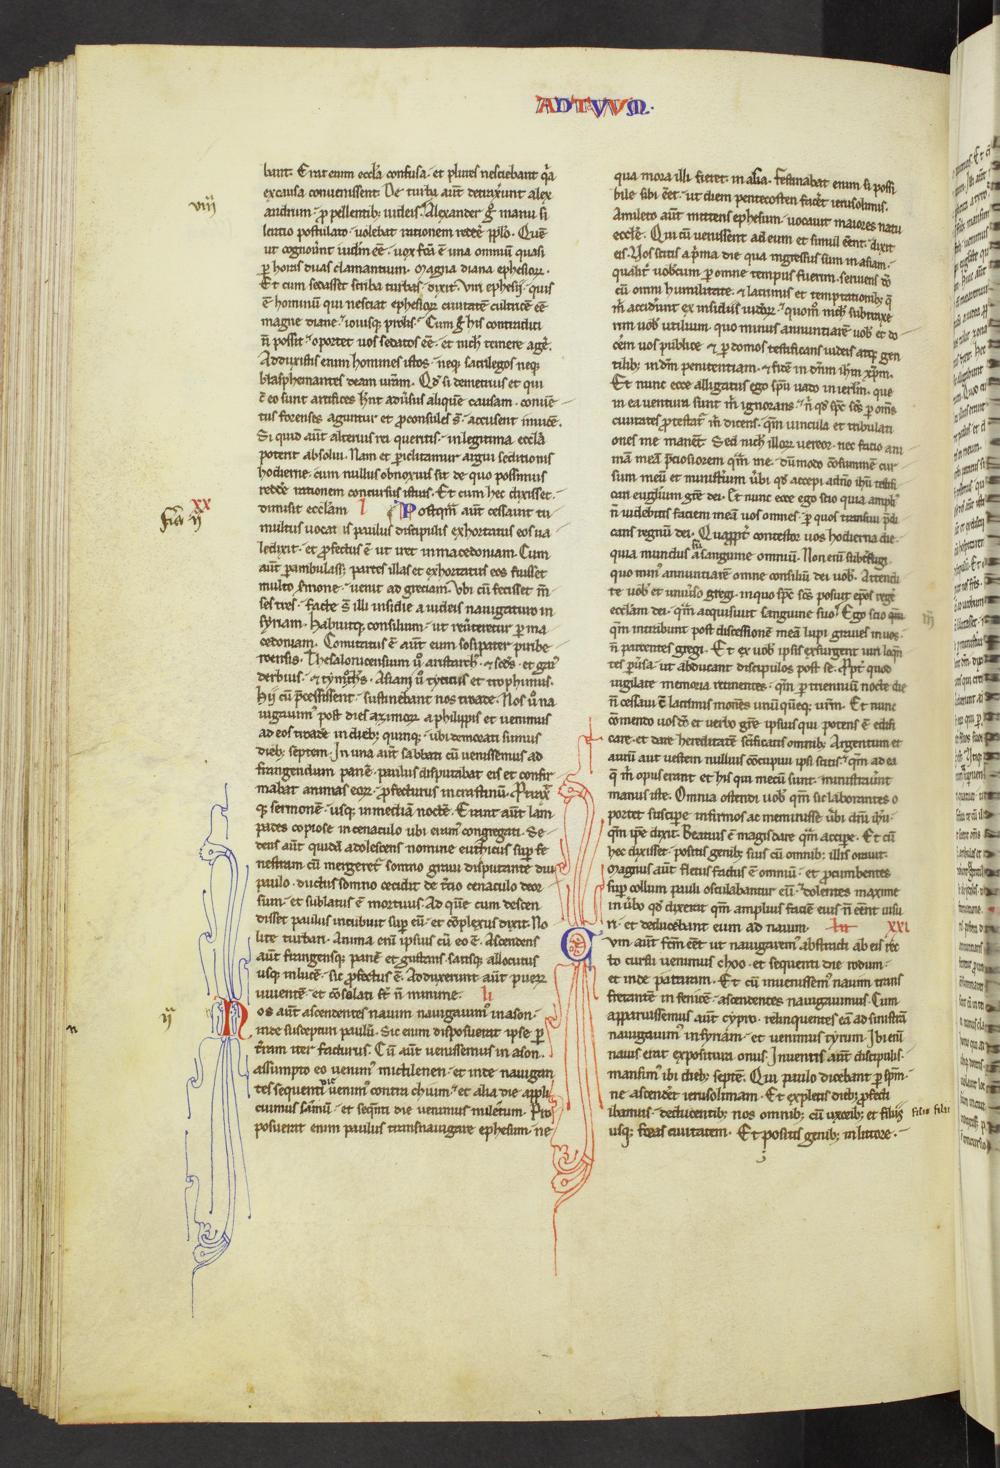 ADTVVM·
bant. Erat enim eccła confusa· et plures nesciebant q̃a
ex causa conuenissent. De turba aut̃ detraxerunt alex
viij
andrum· ꝓpellentib; iudeis. Alexander g̊ manu si
lentio postulato· uolebat rationem redde᷑ pp̃lo. Que᷑
ut cognouer̃t iudeũ ee᷑· uox fc̃a ẽ una omniũ quasi
ꝑ horas duas clamantium. Magna diana ephesioꝝ.
Et cum sedasset scriba turbas· dixit. Viri ephesij· quis
ẽ hominũ qui nesciat ephesioꝝ ciuitatẽ cultricẽ ee᷑
magne diane· iouisq; ꝓlis. Cum g̊ his contradici
ñ possit· oportet uos sedatos ee᷑· et nich̃ temere age᷑.
Adduxistis enim homines istos· neq; sacrilegos neq;
blasphemantes deam ur̃am. Qd̃ si demetrius et qui
c̃ eo sunt artifices hñt adũsus aliquẽ causam· conuẽ
tus forenses aguntur et ꝓconsules s̃· accusent inuicẽ.
Si quid aut̃ alterius rei queritis· in legitima eccł̃a
poterit absolui. Nam et periclitamur argui seditionis
hodierne· cum nullus obnoxius sit de quo possimus
redde᷑ rationem concursus istius. Et cum hec dixisset·
dimisit eccłam
xx
l
Postq̃m aut̃ cessauit tu
multus uocatis paulus discipulis exhortatus eos ua
ledixit· et ꝓfectus ẽ ut iret in macedoniam. Cum
aut̃ ꝑambulass; partes illas et exhortatus eos fuisset
multo sermone· uenit ad greciam. Vbi cũ fecisset m̃
ses tres· facte s̃ illi insidie a iudeis nauigaturo in
syriam. habuitq; consilium· ut reũteretur ꝑ ma
cedoniam. Comitatus ẽ aut̃ eum sosipater pirri be
roensis. Thesalonicensium ũ aristarch᷒· et scds· et gai᷒
derbius· et tymoth̃s. Asiani ũ tyticus et trophimus.
Hij cũ p̃cessissent· sustinebant nos troade. Nos ũ na
uigauim᷒ post dies azimoꝝ a philippis et uenimus
ad eos troade in dieb; quinq;· ubi demorati sumus
dieb; septem. In una aut̃ sabbati cũ uenissemus ad
frangendum panẽ· paulus disputabat eis et confir
mabat animas eoꝝ· ꝓfecturus in crastinũ. Ptrax̃
q; sermonẽ· usq; in mediã noctẽ. Erant aut̃ lam
pades copiose in cenaculo ubi eram᷒ congregati. Se
dens aut̃ quidã adolescens nomine euthicus sup fe
nestram cũ mergeret᷑ somno graui disputante diu
paulo· ductus somno cecidit de t̃cio cenaculo deor
sum· et sublatus ẽ mortuus. Ad quẽ cum descen
disset paulus incubuit sup eũ· et cõplexus dixit. No
lite turbari. Anima eni᷑ ipsius cũ eo ẽ. Ascendens
aut̃ frangensq; panẽ et gustans· satisq; allocutus
usq; in lucẽ· sic ꝓfectus ẽ. Adduxerunt aut̃ pueꝝ
uiuentẽ· et cõsolati st̃ ñ minime.
li
Nos aut̃ ascendentes nauim nauigauim᷒ in ason·
ij
n
inde suscepturi paulũ. Sic enim disposuerat ipse ꝑ
t̃ram iter facturus. Cũ aut̃ uenissemus in ason·
assumpto eo uenim᷒ mitilenen· et inde nauigan
tes sequenti die uenim᷒ contra chium· et alia die appli
cuimus samũ· et seq̃nti die uenimus miletum. Pro
posuerat enim paulus transnauigare ephesum· ne
qua mora illi fieret in asia. Festinabat enim si possi
bile sibi eet᷑· ut diem pentecosten facet᷑ ierusolimis.
A mileto aut̃ mittens ephesum· uocauit maiores natu
eccłe. Qui cũ uenissent ad eum et simul eent᷑· dixit
eis. Vos scitis a p̃ma die qua ingressus sum in asiam·
qualit᷑ uob̃cum ꝑ omne tempus fuerim· seruiens dõ
cũ omni humilitate· et lacrimis et temptationib; q̃
m̃ acciderũt ex insidiis iudeoꝝ· quom᷒ nich̃ subtraxe
rim uob̃ utilium· quo minus annuntiare᷑ uob̃ et do
cẽm uos publice· et ꝑ domos testificans iudeis atq; gen
tilib; in dm̃ penitentiam· et fidẽ in dñm ihm̃ xp̃m.
Et nunc ecce alligatus ego spũ uado in ierłm· que
in ea uentura sunt m̃ ignorans· ñ qd̃ spc̃ sc̃s ꝑ omẽs
ciuitates ꝓtestat᷑ m̃ dicens· qm̃ uincula et tribulati
ones me manẽt. Sed nich̃ illoꝝ uereor· nec facio ani
mã meã p̃ciosiorem q̃m me· dũmodo cõsummẽ cur
sum meũ et ministr̃ium ũbi qd̃ accepi a dño ihũ testifi
cari eug̃lium gr̃e dei. Et nunc ecce ego scio quia ampli᷒
ñ uidebitis faciem meã uos omnes· ꝑ quos transiui p̃di
cans regnũ dei. Quapp̃t contestor uos hodierna die·
quia mundus sũ a sanguine omniũ. Non eni᷑ subt̃fugi
quo min᷒ annuntiare᷑ omne consiliũ dei uob̃. Attendi
te uob̃ et uniũso gregi· in quo spc̃ sc̃s posuit ep̃os rege᷑
eccłam dei· q̃m acquisiuit sanguine suo. Ego scio qm̃
qm̃ intrabunt post discessionẽ meã lupi graues in uos·
ñ parcentes gregi. Et ex uob̃ ipsis exsurgent uiri loqn̄
tes ꝑũsa· ut abducant discipulos post se. Ppt᷑ quod
uigilate memoria retinentes· qm̃ ꝑ trienniũ nocte die
ñ cessaui c̃ lacrimis monẽs unũquẽq; ur̃m. Et nunc
cõmendo uos dõ et uerbo gr̃e ipsius qui potens ẽ edifi
care· et dare hereditatẽ sc̃ificatis omnib;. Argentum et
aurũ aut uestem nullius cõcupiui ipsi scitis· qm̃ ad ea
q̃ m̃ opus erant et his qui mecũ sunt· ministraũnt
manus iste. Omnia ostendi uob̃ qm̃ sic laborantes o
portet suscipe᷑ infirmos ac meminisse ũbi dñi ihũ·
qm̃ ip̃e dixit. Beatius ẽ magis dare qm̃ accipe᷑. Et cũ
hec dixisset· positis genib; suis cũ omnib; illis orauit.
Magnus aut̃ fletus factus ẽ omniũ· et ꝓcumbentes
sup collum pauli osculabantur eũ· dolentes maxime
in ũbo qd̃ dixerat qm̃ amplius faciẽ eius ñ eent᷑ uisu
ri· et deducebant eum ad nauim.
lii
xxi
Cum aut̃ fc̃m eet᷑ ut nauigarem᷒ abstracti ab eis rec
to cursu uenimus choo· et sequenti die rodum·
et inde pataram. Et cũ inuenissem᷒ nauim trans
fretantẽ in fenicẽ· ascendentes nauigauimus. Cum
apparuissemus aut̃ cypro· relinquentes eã ad sinistrã
nauigauim᷒ in syriam· et uenimus tyrum. Ibi eni᷑
nauis erat expositura onus. Inuentis aut̃ discipulis·
mansim᷒ ibi dieb; septẽ. Qui paulo dicebant ꝑ spm̃·
ne ascendet᷑ ierusolimam. Et expletis dieb; ꝓfecti
ibamus· deducentib; nos omnib; cũ uxorib; et filiis
filiis
usq; foras ciuitatem. Et positis genib; in littore·